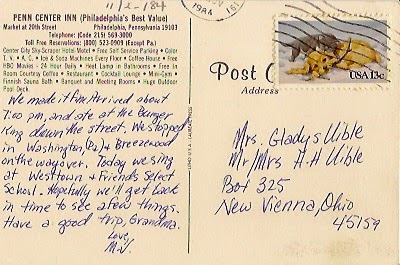 11/2-184
PENN CENTER INN (Philadelphia's Best Value)
Market at 20th Street Philadelphia, Pennsylvania 19103
Telephone: (Code 215) 569-3000
Toll Free Reservations: (800) 523-0909 (Except Pa)
Center City Sky-Scraper Hotel-Motel • Free Self Service Parking • Color
T. V. • A. C. • Ice & Soda Machines Every Floor • Coffee House • Free
HBO Movies - 24 Hour Daily • Heat Lamp in Bathrooms • Free In
Room Courtesy Coffee • Restaurant • Cocktail Lounge • Mini-Gym •
Finnish Sauna Bath • Banquet and Meeting Rooms • Huge Outdoor
Pool Deck.
We made it fine. Arrived about
7:00 pm, and ate at the Burger
King down the street. We stopped
in Washington, (Pa.) & Breezewood
on the way over. Today we sing
at Westtown & Friends Select
School. Hopefully we'll get back
in time to see a few things.
Have a good trip, Grandma.
Love,
M.J.
1984
USA 13c
Post C
Address
Mrs. Gladys Uible
Mr/Mrs H H Uible
Box 325
New Vienna, Ohio
45159